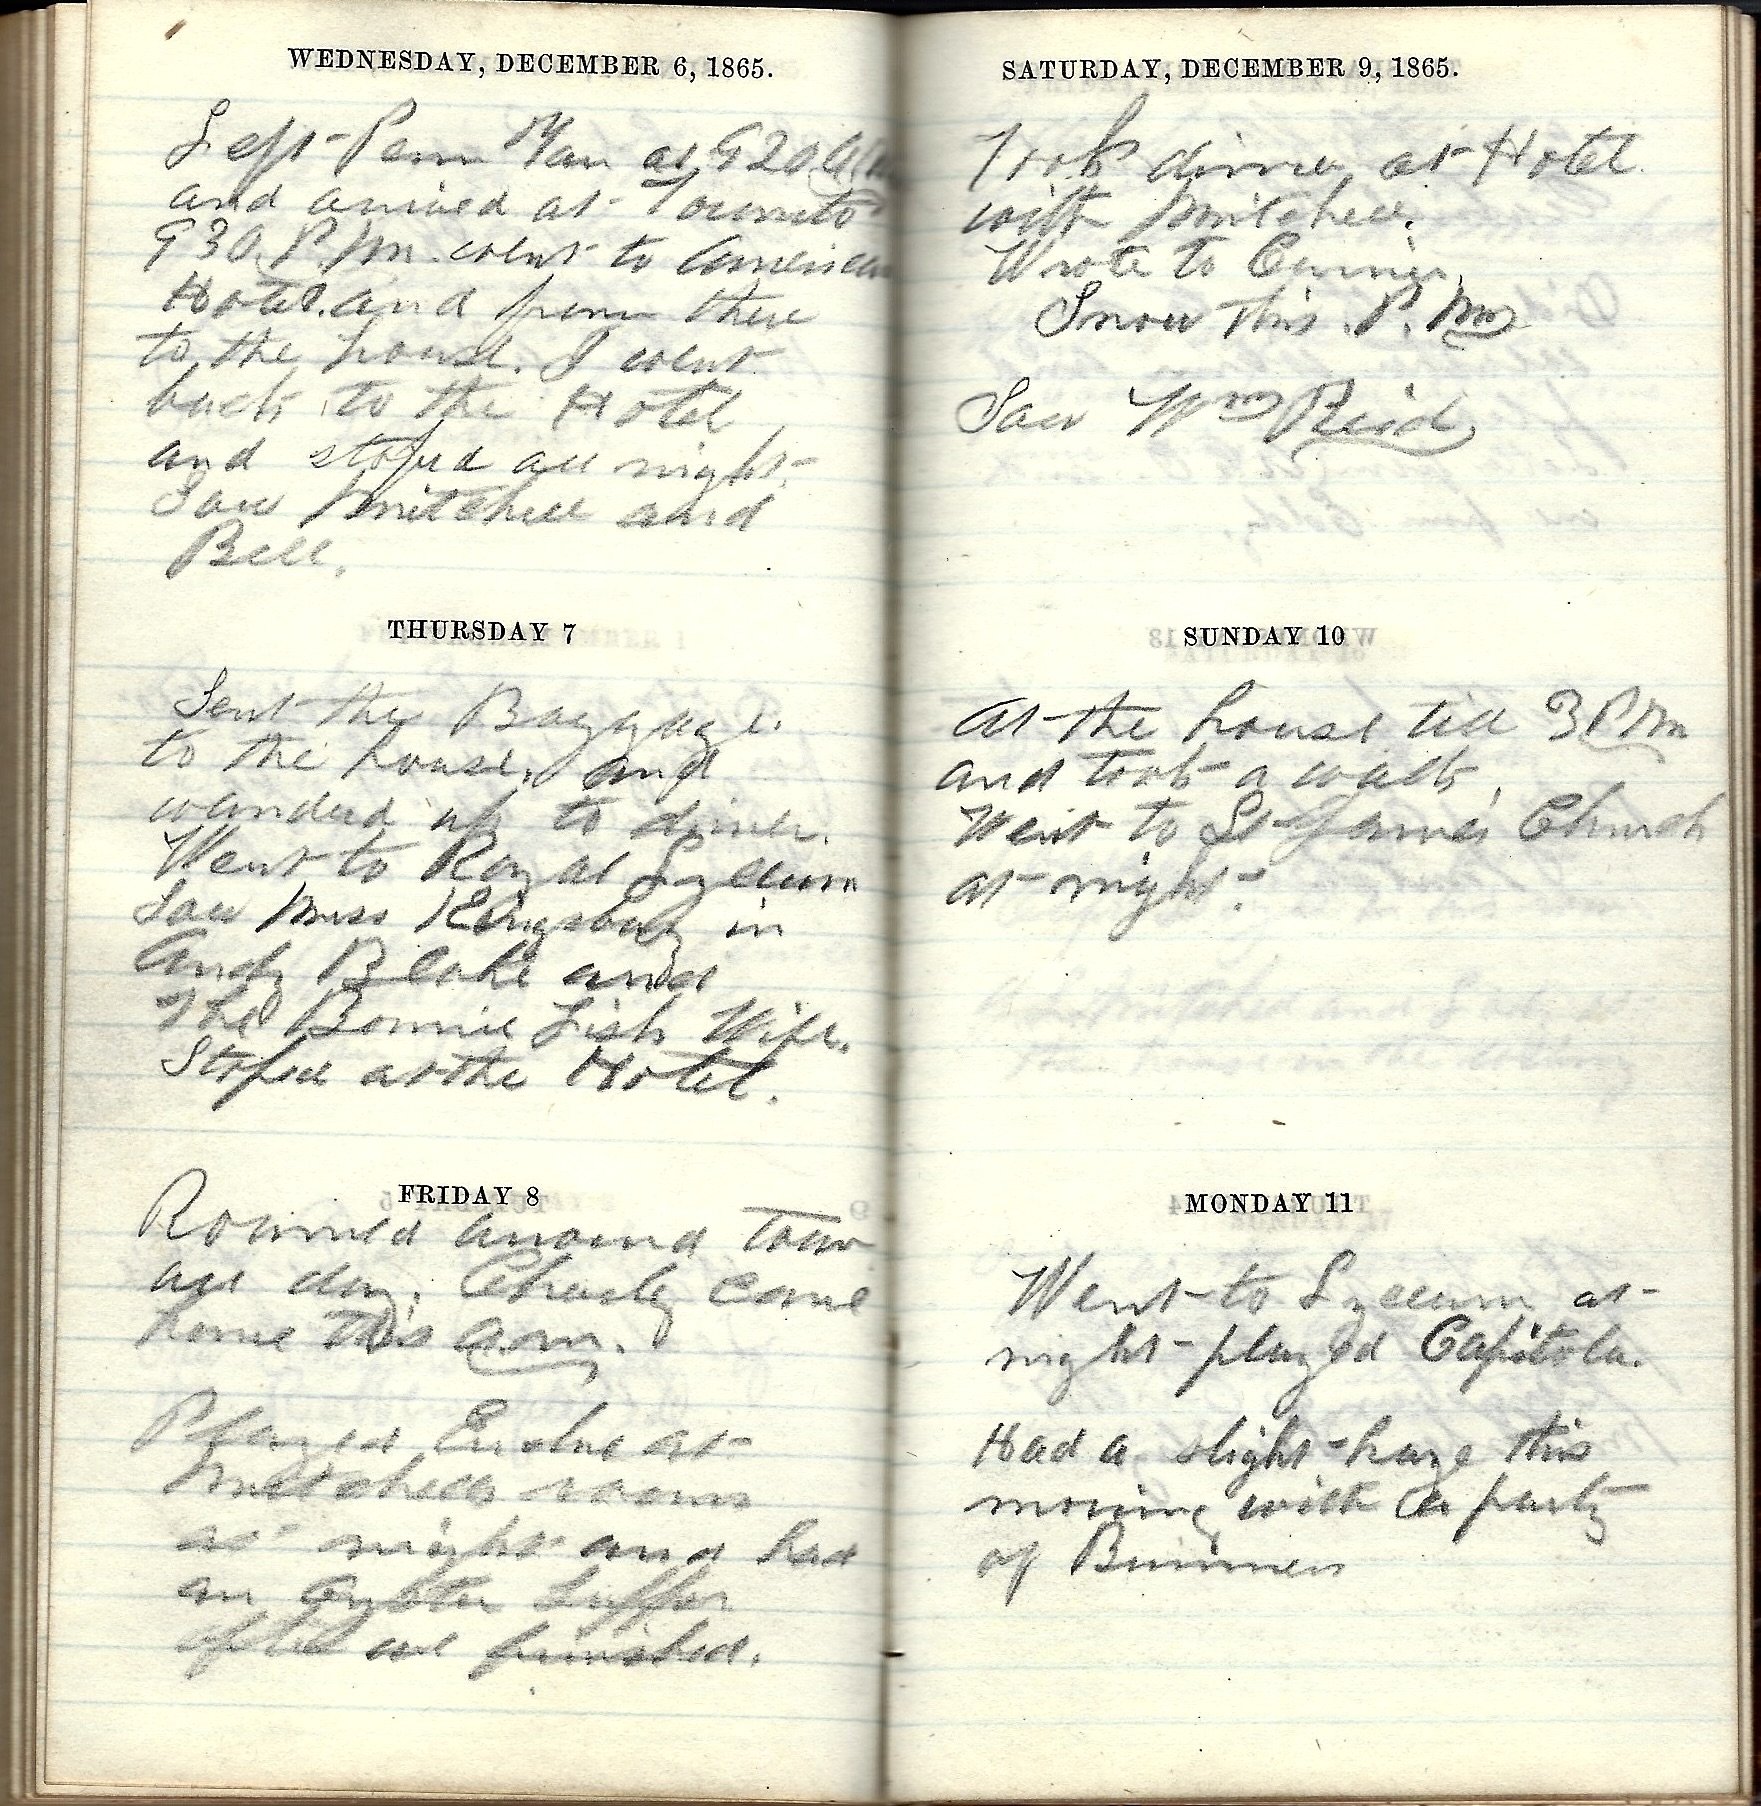 WEDNESDAY, DECEMBER 6, 1865.
Left Penn Yan at 920 A.M
and arived at Toronto
930. P.M. went to American
Hotel. and from there
to the house. I went
back to the Hotel
and stoped all night.
Saw Mitchell and
Bell.
THURSDAY 7
Sent the Baggage.
to the house. and
wanderd up to diner.
Went to Royal Lyceum
Saw Miss Kingsbury in
Andy Blake and
The Bonnie Fish Wife.
Stoped at the Hotel.
FRIDAY 8
Roamed around town
all day. Charly came
home this am.
Played Euchre at
Mitchells rooms
at night and had
an Oyster Supper
after we finished.
SATURDAY, DECEMBER 9, 1865.
Took dinner at Hotel
with Mitchell.
Wrote to
Snow this P. M
Saw Wm Reid
SUNDAY 10
At the house till 3 P M
and took a walk.
Went to St James Church
at night.
MONDAY 11
Went to Lyceum at
night played Capitola.
Had a slight haze this
morning with a party
of